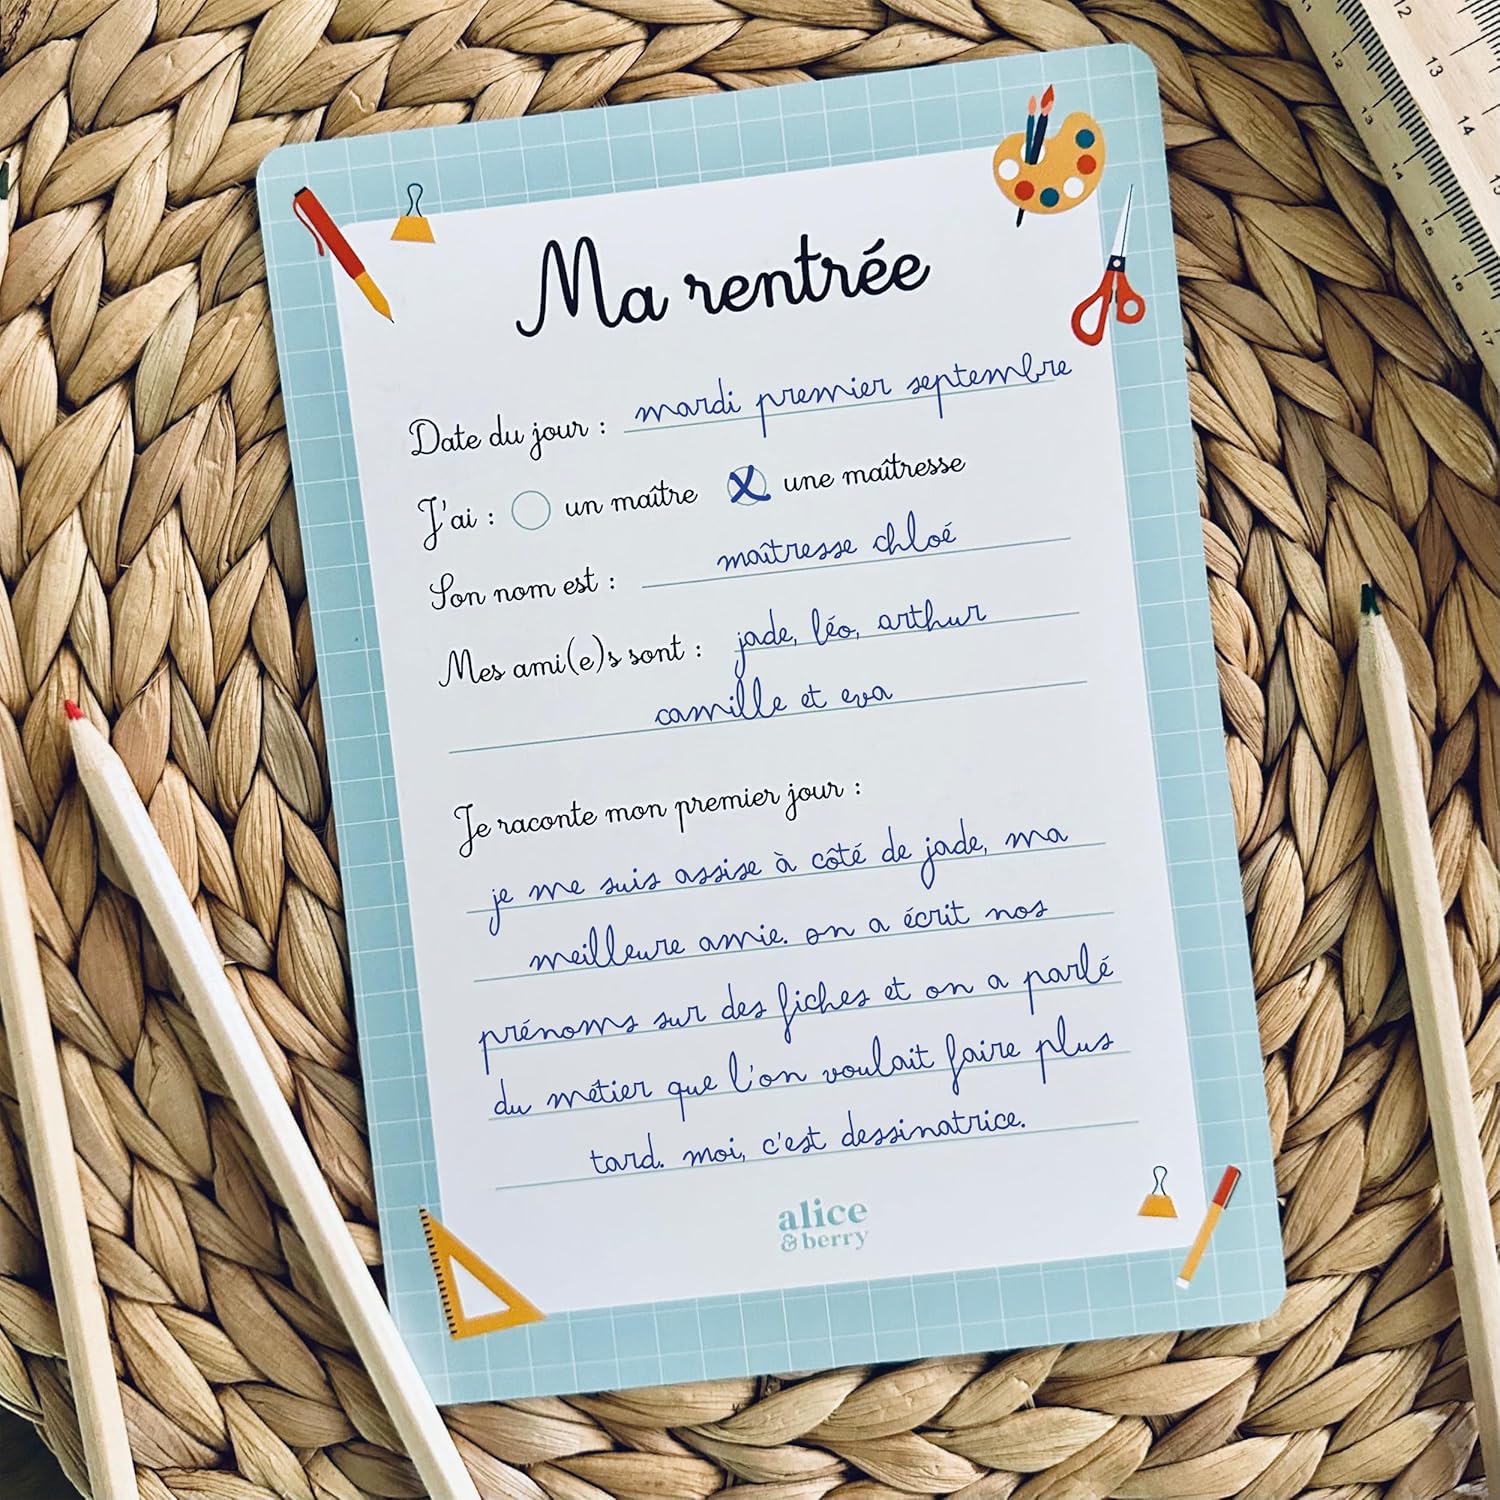 Ma rentrée
Date du jour : mardi premier septembre
J'ai : un maître X une maîtresse
Son nom est : maîtresse chloé
Mes ami(e)s sont : jade, léo, arthur
camille et eva
Je raconte mon premier jour :
je me suis assise à côté de jade, ma
meilleure amie. on a écrit nos
prénoms sur des fiches et on a parlé
du métier que l'on voulait faire plus
tard. moi, c'est dessinatrice.
alice
&berry
12
13
14
12
13
14
15
16
17